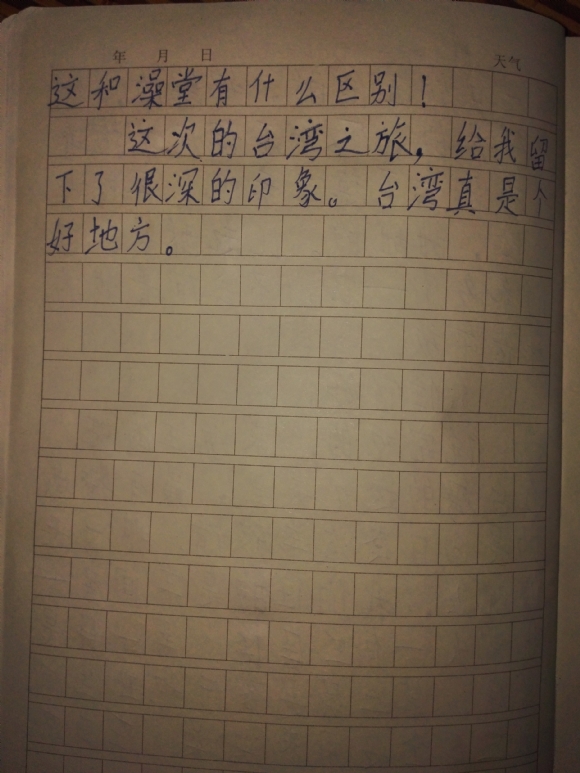 年 月 日 天气
这和澡堂有什么区别！
这次的台湾之旅，给我留
下了很深的印象。台湾真是个
好地方。